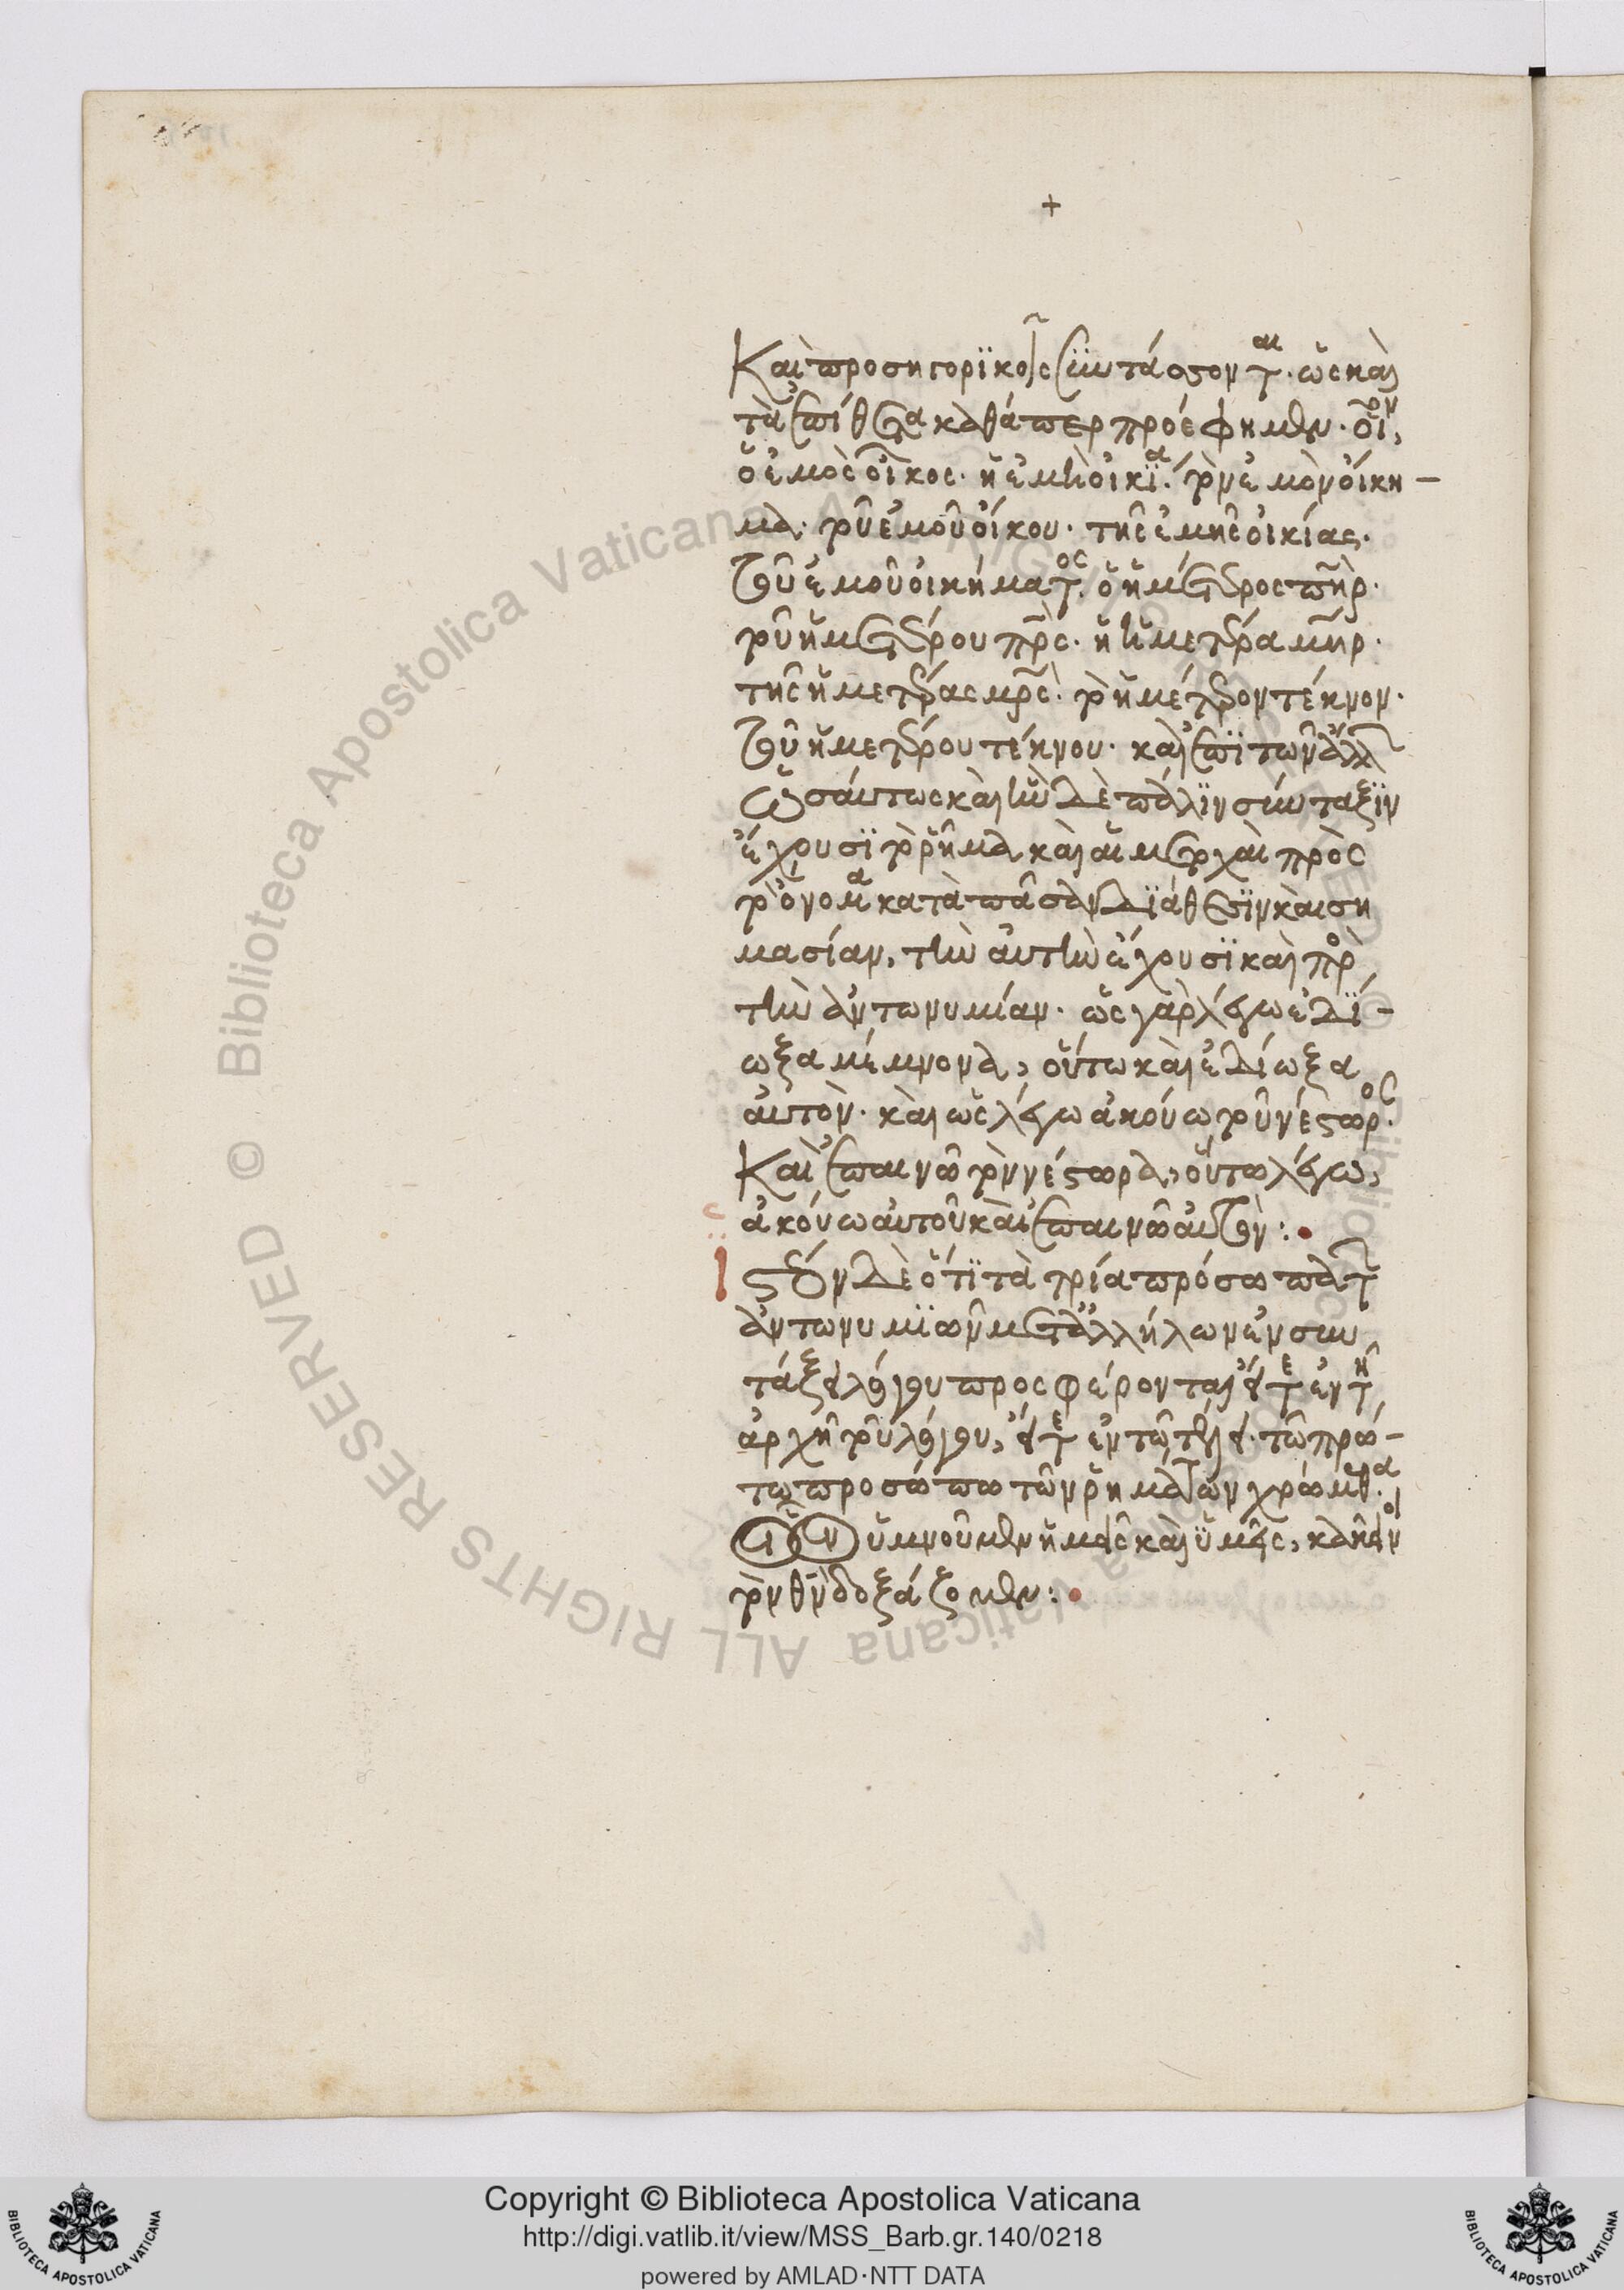 +
Καὶ προσηγορϊκοῖς συντάσσονται. ὡς καὶ
τὰ ἐπίθετα καθάπερ προέφημεν. οἷον,
ὁ ἐμὸς οἶκος. ἡ ἐμὴ οἰκΐα. τὸν ἐμὸν οἴκη-
μα. τοῦ ἐμοῦ οἴκου. τῆς ἐμῆς οἰκίας.
τοῦ ἐμοῦ οἰκήματος. ὁ ἡμέτερος πῆρ.
τοῦ ἡμετέρου πρς. ἡ ἡμετέρα μῆρ.
τῆς ἡμετέρας μρς. τὸ ἡμέτερον τέκνον.
τοῦ ἡμετέρου τέκνου. καὶ ἐπῒ τῶν ἄλλ
ὡσαύτως καὶ ἣν δὲ πάλϊν σύνταξϊν
ἔχουσϊ τὸ ῥῆμα καὶ αἱ μετοχαὶ πρὸς
τὸ ὄνομα κατὰ πᾶσαν δϊάθεσϊν καὶ ση
μασίαν, τὴν αὐτὴν ἔχουσϊ καὶ πρὸ
τὴν ἀντωνυμίαν. ὡς γὰρ λέγω ἐδΐ-
ωξα μέμνονα, οὕτω καὶ ἐδίωξα
αὐτὸν. καὶ ὡς λέγω ἀκούω τοῦ νέστορος.
Καὶ ἐπαινῶ τὸν νέστορα, οὕτω λέγω,
ἀκούω αὐτοῦ καὶ ἐπαινῶ αὐτὸν:
Ιστέον δὲ ὅτϊ τὰ τρία πρόσωπα τ
ἀντωνυμϊῶν μετ ἀλλήλων ἐν συν
τάξει λόγου προσφέρονται εἴτε ἐν τῆ
ἀρχῆ τοῦ λόγου, εἴτε ἐν τῶ τέλει. τῶ πρώ-
τω προσώπω τῶν ῥημάτων χρώμεθα.
ὑμνοῦμεν ἡμεῖς καὶ ὑμεῖς, κἀκεῖνοι
τὸν θν δοξάζομεν:
Copyright © Biblioteca Apostolica Vaticana
http://digi.vatlib.it/view/MSS_Barb.gr.140/0218
powered by AMLAD·NTT DATA
BIBLIOTECA APOSTOLICA VATICANA
BIBLIOTECA APOSTOLICA VATICANA
© Biblioteca Apostolica Vaticana ALL RIGHTS RESERVED